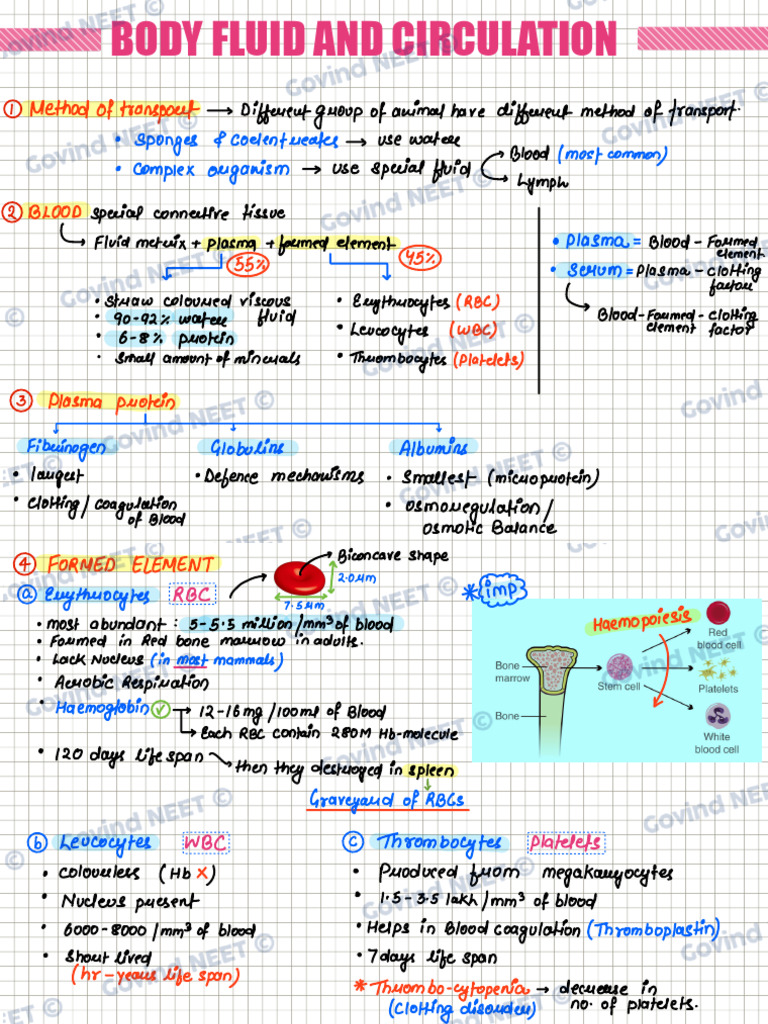 BODY FLUID AND CIRCULATION
① Method of transport → Different group of animal have different method of transport.
• Sponges & Coelentreates → use water
• Complex organism → use special fluid
Blood (most common)
Lymph
② BLOOD special connective tissue
Fluid metrix + plasma + formed element
55%
45%
• Straw coloured viscous fluid
• 90-92% water
• 6-8% protein
• Small amount of minerals
• Erythrocytes (RBC)
• Leucocytes (WBC)
• Thrombocytes (Platelets)
• Plasma = Blood - Formed element
• Serum = Plasma - Clotting factors
Blood - Formed element - Clotting factor
③ Plasma protein
Fibrinogen
• largest
• Clotting / coagulation of Blood
Globulins
• Defence mechanisms
Albumins
• Smallest (microprotein)
• Osmoregulation / Osmotic Balance
④ FORMED ELEMENT
Biconcave shape
2.0μm
7.5μm
ⓐ Erythrocytes RBC
• most abundant : 5-5.5 million/mm³ of blood
• Formed in Red bone marrow in adults.
• Lack Nucleus (in most mammals)
• Aerobic Respiration
• Haemoglobin ✓ → 12-16 mg /100ml of Blood
→ Each RBC contain 280M Hb-molecule
• 120 days life span → then they destroyed in spleen
Graveyard of RBCs
* imp
Haemopoiesis
Bone marrow
Bone
Stem cell
Red blood cell
Platelets
White blood cell
ⓑ Leucocytes WBC
• Colourless (Hb X)
• Nucleus present
• 6000-8000 /mm³ of blood
• Short lived
(hr-years life span)
ⓒ Thrombocytes Platelets
• Produced from megakaryocytes
• 1.5-3.5 lakh/mm³ of blood
• Helps in Blood coagulation (Thromboplastin)
• 7 days life span
* Thrombo-cytopenia → decrease in no. of platelets.
(Clotting disorder)
Govind NEET ©